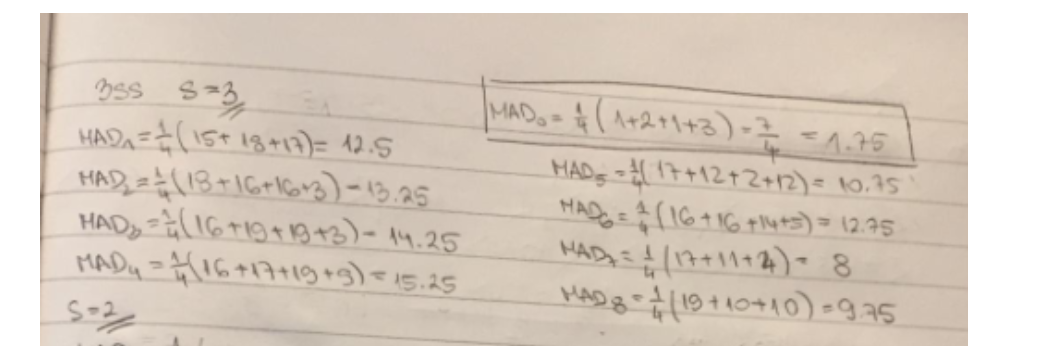 3SS S=3
MAD₁=1/4(15+18+17)= 12.5
MAD₂=1/4(18+16+16+3)=13.25
MAD₃=1/4(16+19+19+3)= 14.25
MAD₄=1/4(16+17+19+9)=15.25
S=2
MAD₀= 1/4(1+2+1+3)=7/4 = 1.75
MAD₅=1/4(17+12+2+12)= 10.75
MAD₆=1/4(16+16+14+5)= 12.75
MAD₇=1/4(17+11+4)= 8
MAD₈=1/4(19+10+10)=9.75